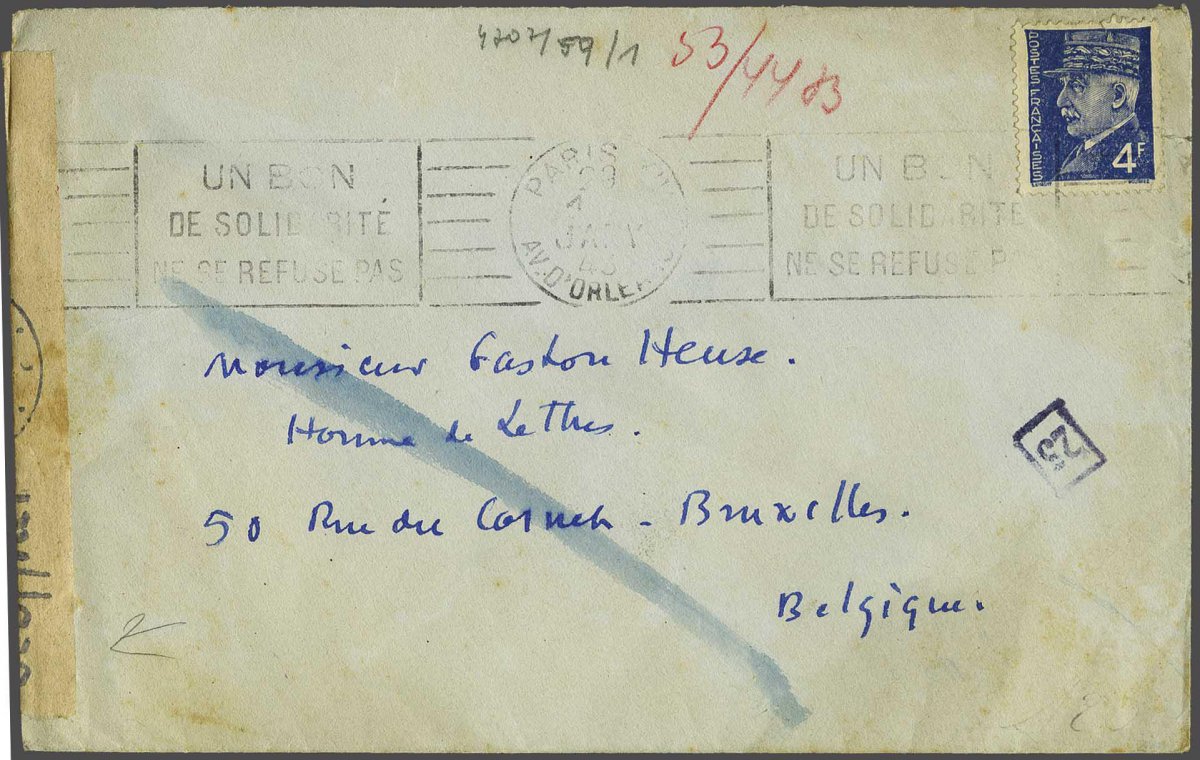 4207/59/1
53/4483
POSTES FRANÇAISES
4F
UN BON
DE SOLIDARITÉ
NE SE REFUSE PAS
PARIS
JANV
43
AV. D'ORLEANS
UN BON
DE SOLIDARITÉ
NE SE REFUSE PAS
Monsieur Gaston Heuse.
Homme de Lettres.
23
50 Rue du Cornet - Bruxelles.
Belgique.